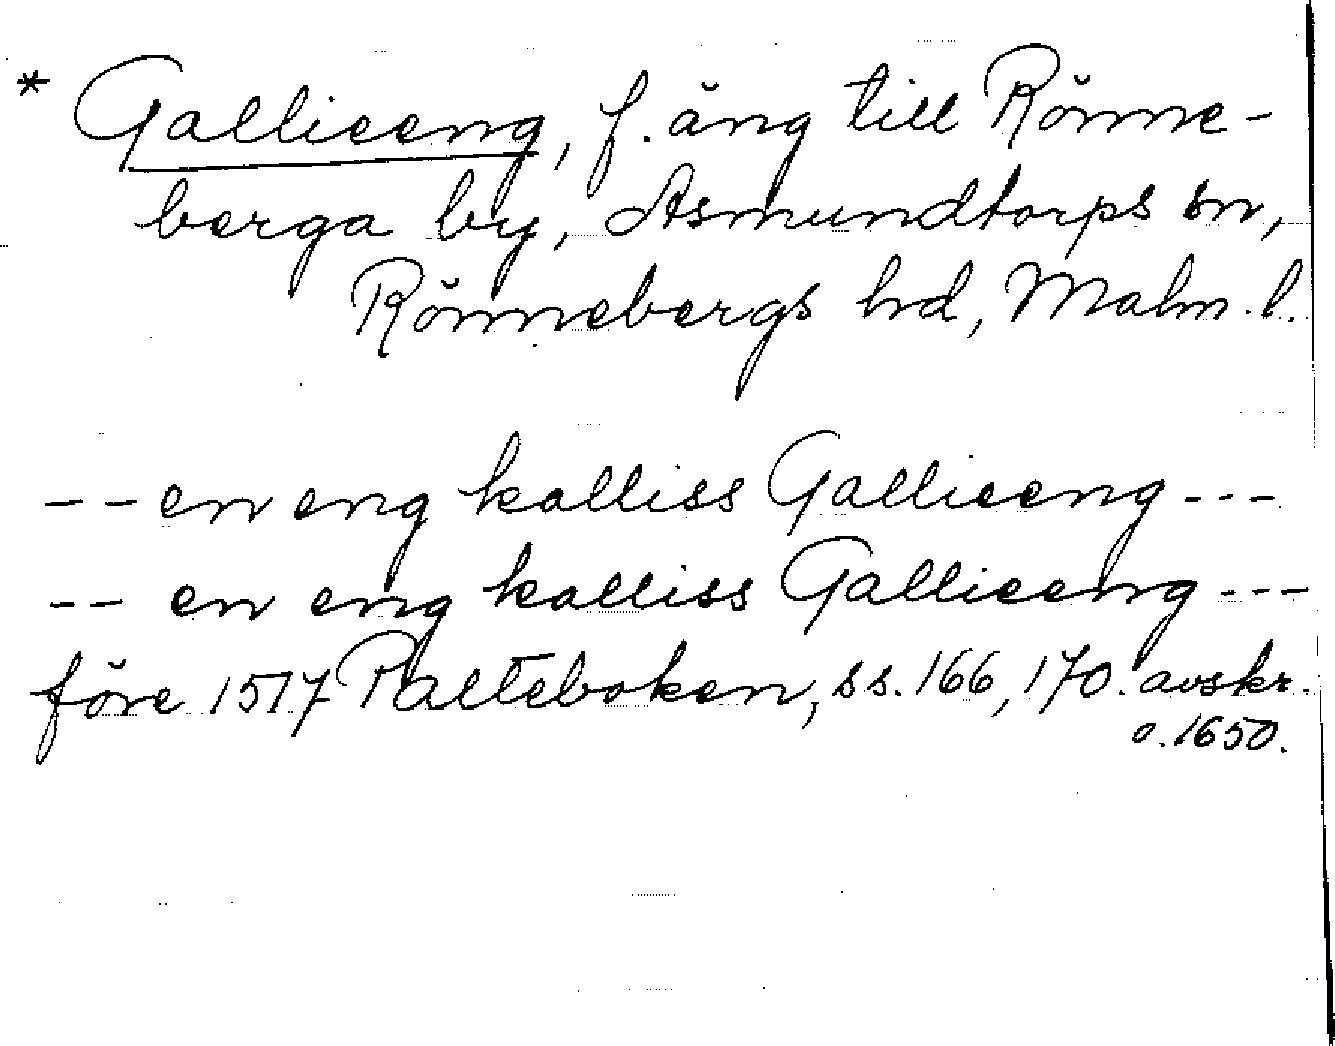 * Gallieeng, f. äng till Rönne-
berga by, Asmundtorps sn,
Rönnebergs hd, Malm. l.
-- en eng kalliss Gallieeng ---
-- en eng kalliss Gallieeng ---
före 1517 Palteboken, ss. 166, 170. avskr.
o. 1650.